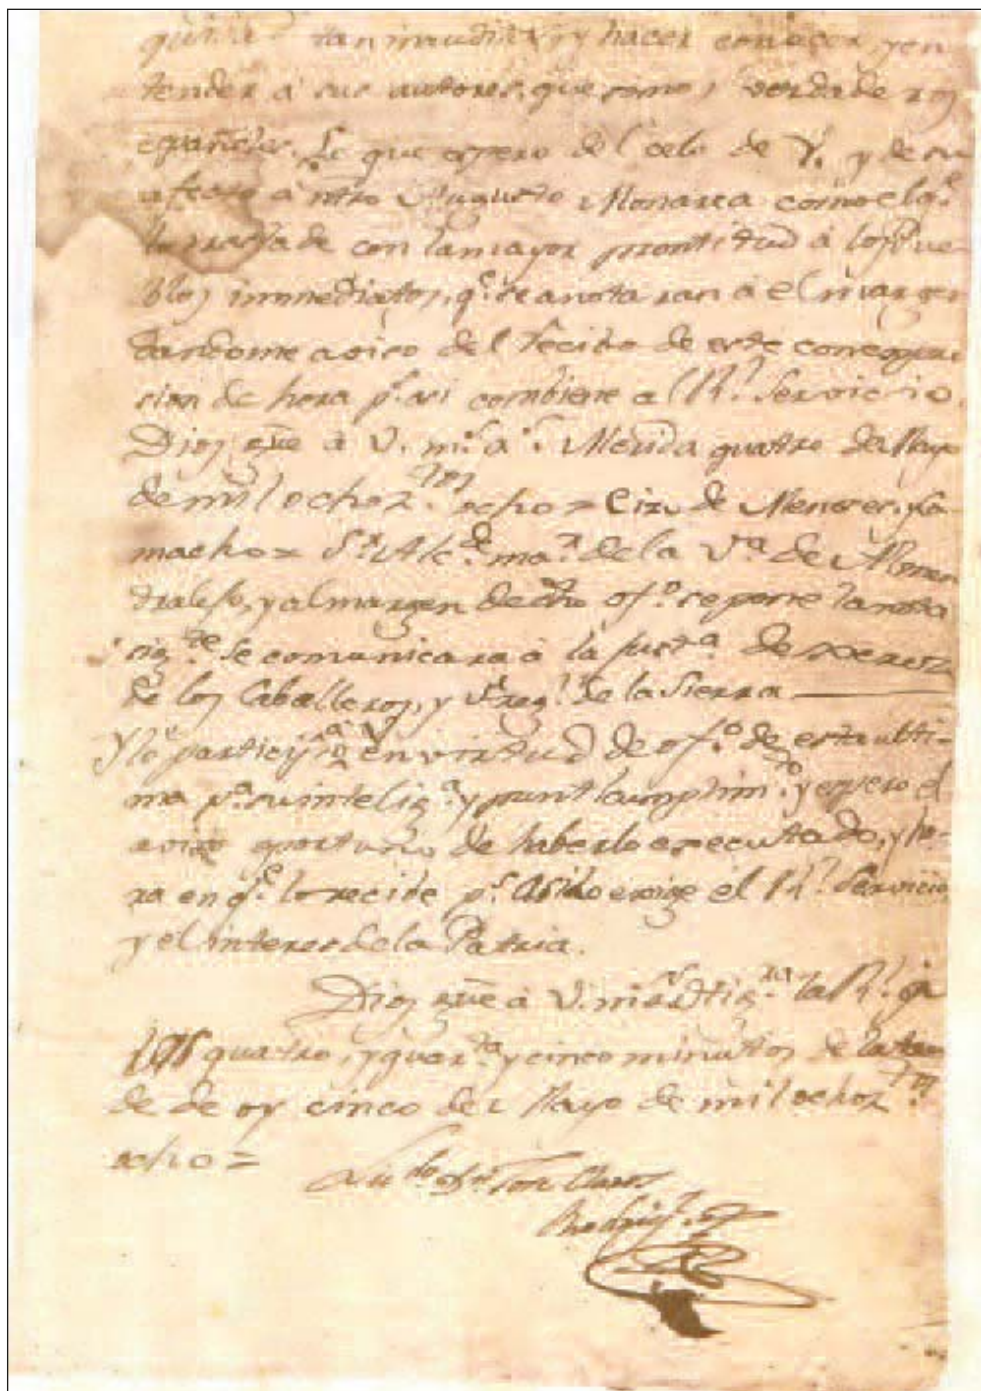 tan inaudita, y hacer conocer, y en
tender a sus autores, que somos verdaderos
españoles. Lo que espero del celo de V. y de su
afecto a ntro Augusto Monarca como el q.e
lo traslade con la mayor prontitud á los Pue
blos inmediatos, q.e se anotaran á el margen
dandome aviso del recibo de este con expre
sion de hora p.r asi combiene al R.l Servicio.
Dios gue á V. m.s a.s Merida quatro de Mayo
de mil ochoz.tos ocho = de
macho = S.r Alc.de ma.r de la V.a de Almen
dralejo, y al margen de dho of.o se pone la nota
sig.te se comunicara á la just.a de Xerez
de los Caballeros, y Freg.l de la Sierra
Y lo participo á V. en virtud de of.o de esta ulti
ma p.a su intelig.a y punt.l cumplim.to y espero el
aviso oportuno de haberlo executado, y ho-
ra en q.e lo recibe p.r exige el R.l Servicio
y el interes de la Patria.
Dios gue á V. m.s la R.l
las quatro, y quar.ta y cinco minutos de la tar
de de oy cinco de Mayo de mil ochoz.tos
ocho =